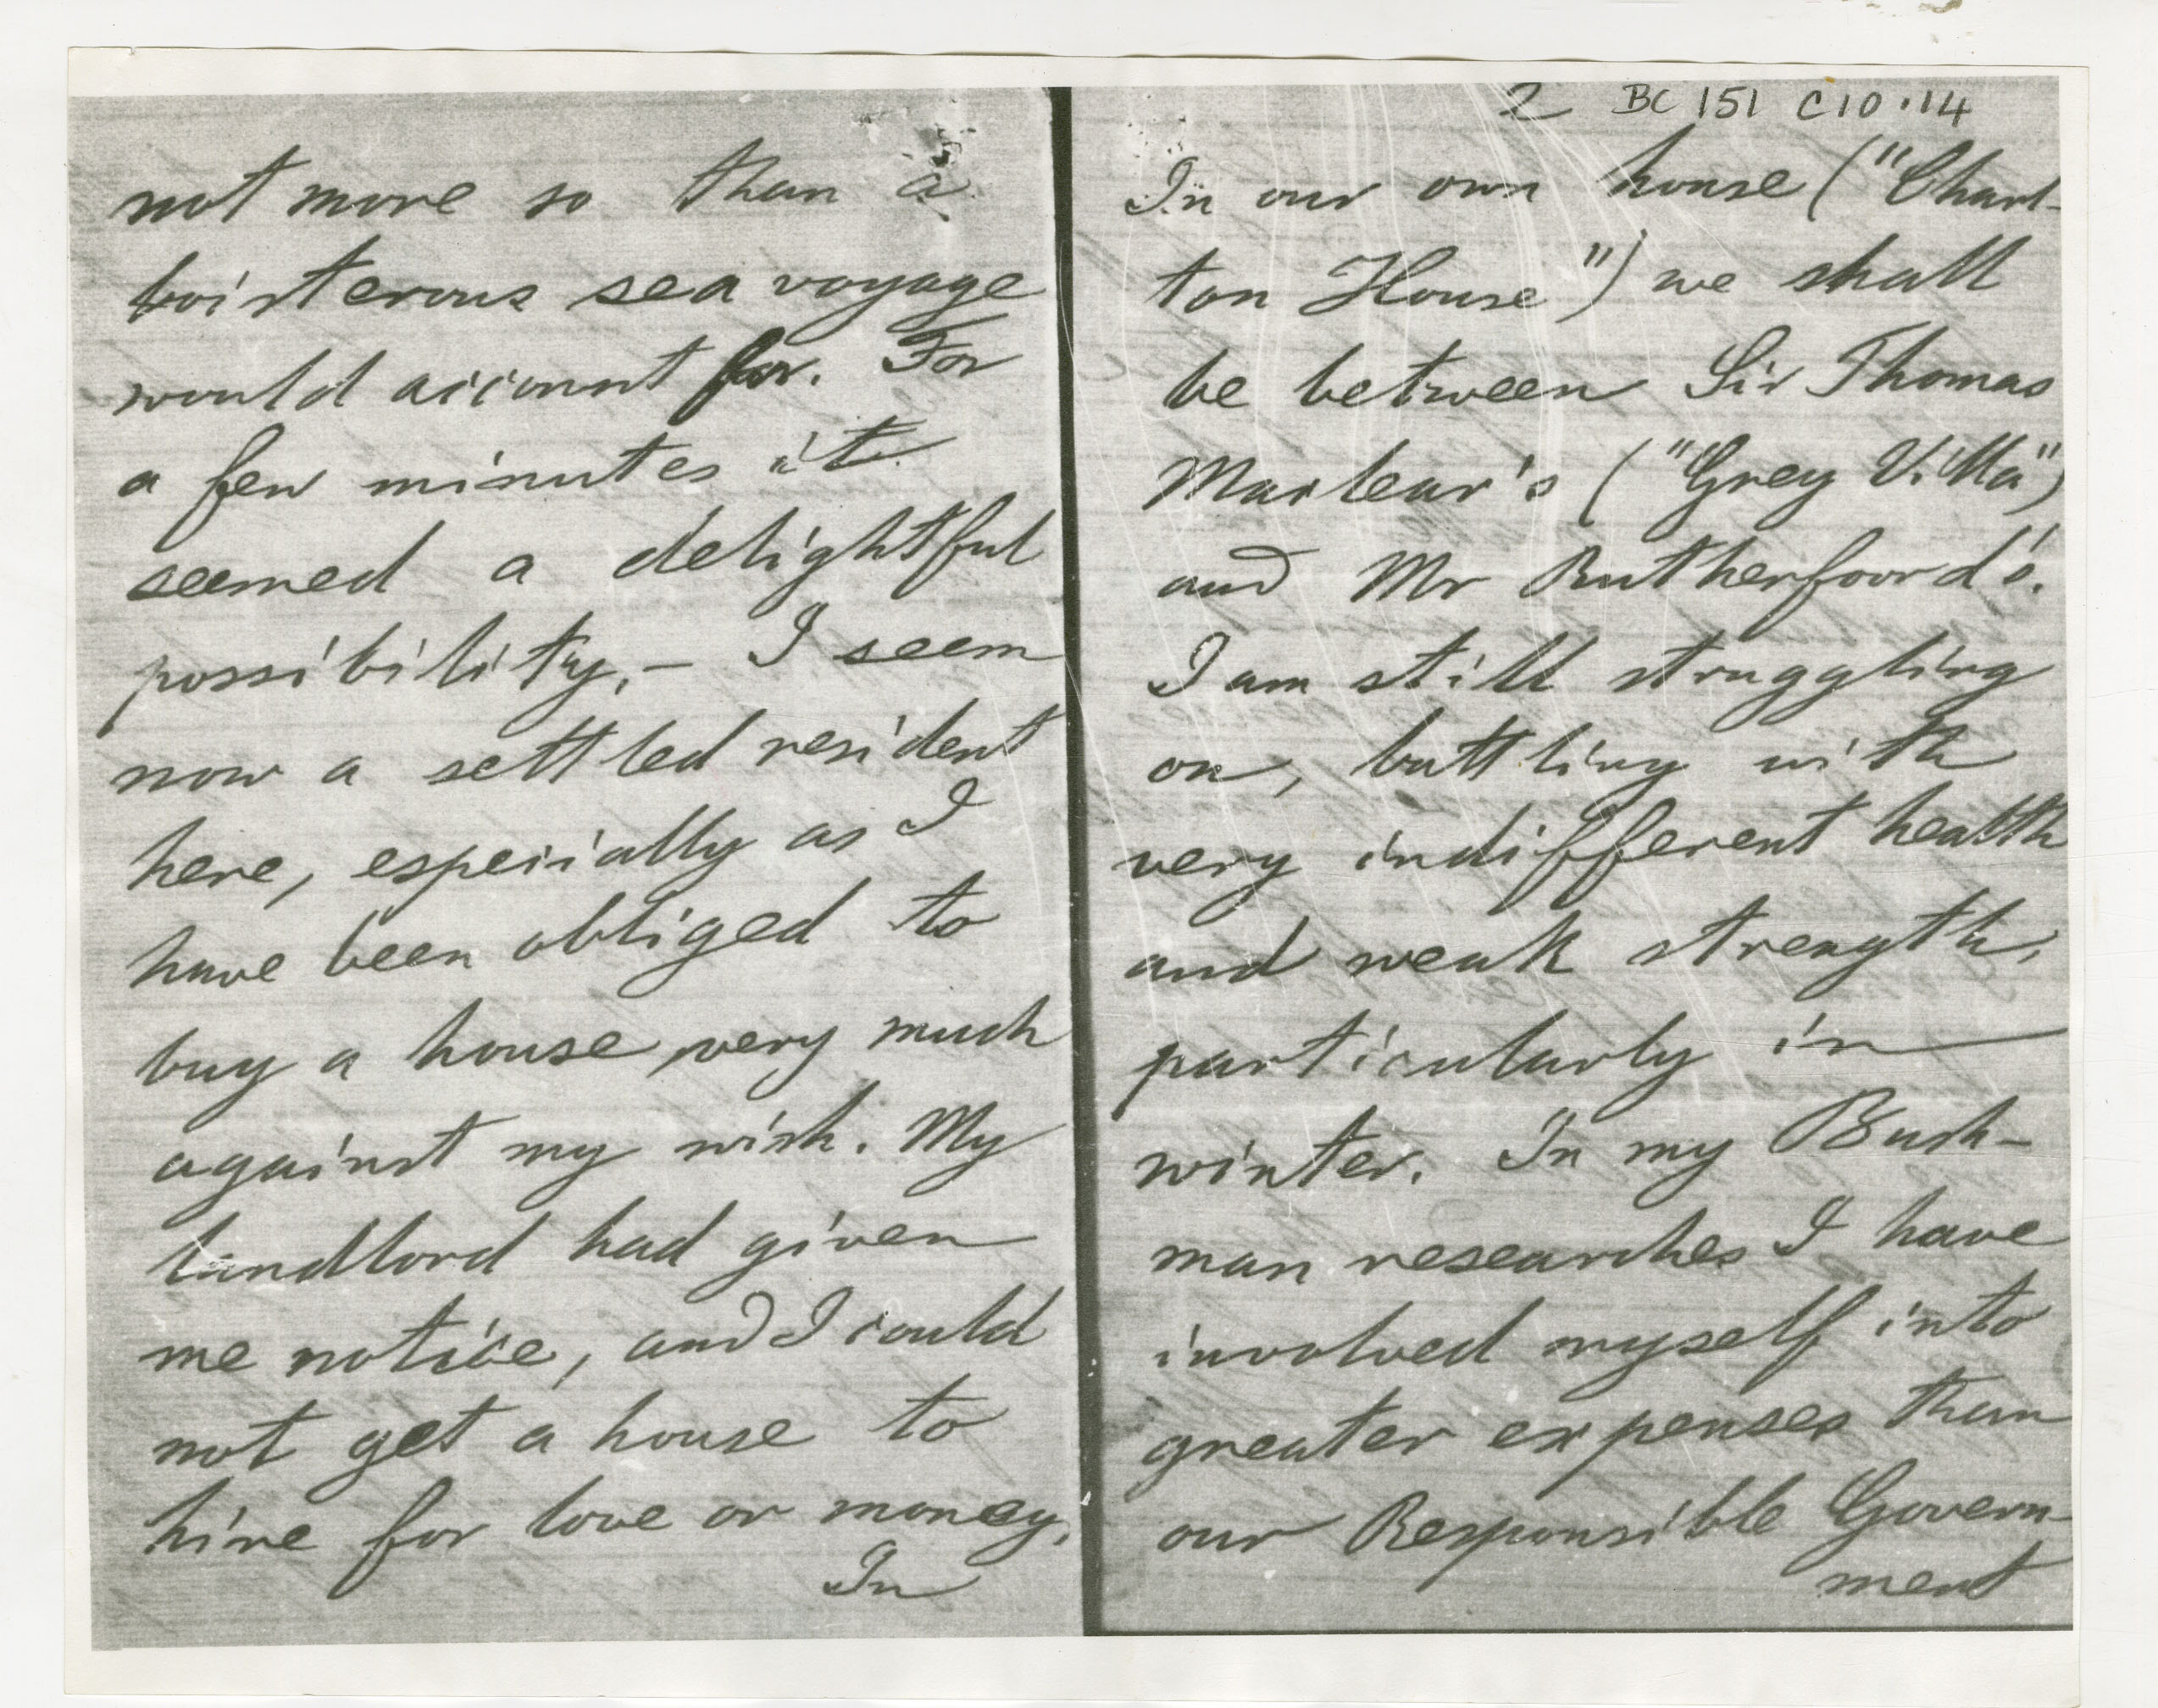 not more so than a
boisterous sea voyage
would account for. For
a few minutes it
seemed a delightful
possibility, – I seem
now a settled resident
here, especially as I
have been obliged to
buy a house very much
against my wish. My
landlord had given
me notice, and I could
not get a house to
hire for love or money.
In
2 BC 151 C10.14
In our own house ("Charl-
ton House") we shall
be between Sir Thomas
Maclear's ("Grey Villa")
and Mr Rutherfoord's.
I am still struggling
on, battling with
very indifferent health
and weak strength,
particularly in
winter. In my Bush-
man researches I have
involved myself into
greater expenses than
our Responsible Govern-
ment